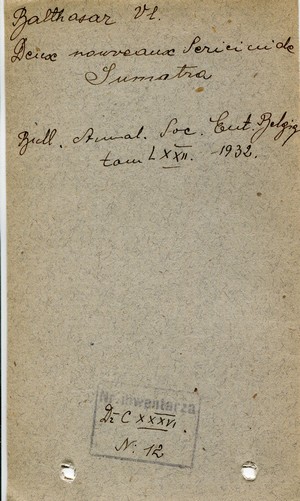 Balthasar Vl.
Deux nouveaux Sericini de
Sumatra
Bull. Annal. Soc. Ent. Belgiq
tom LXXII. 1932.
Nr. inwentarza
Dz C XXXVI.
N: 12